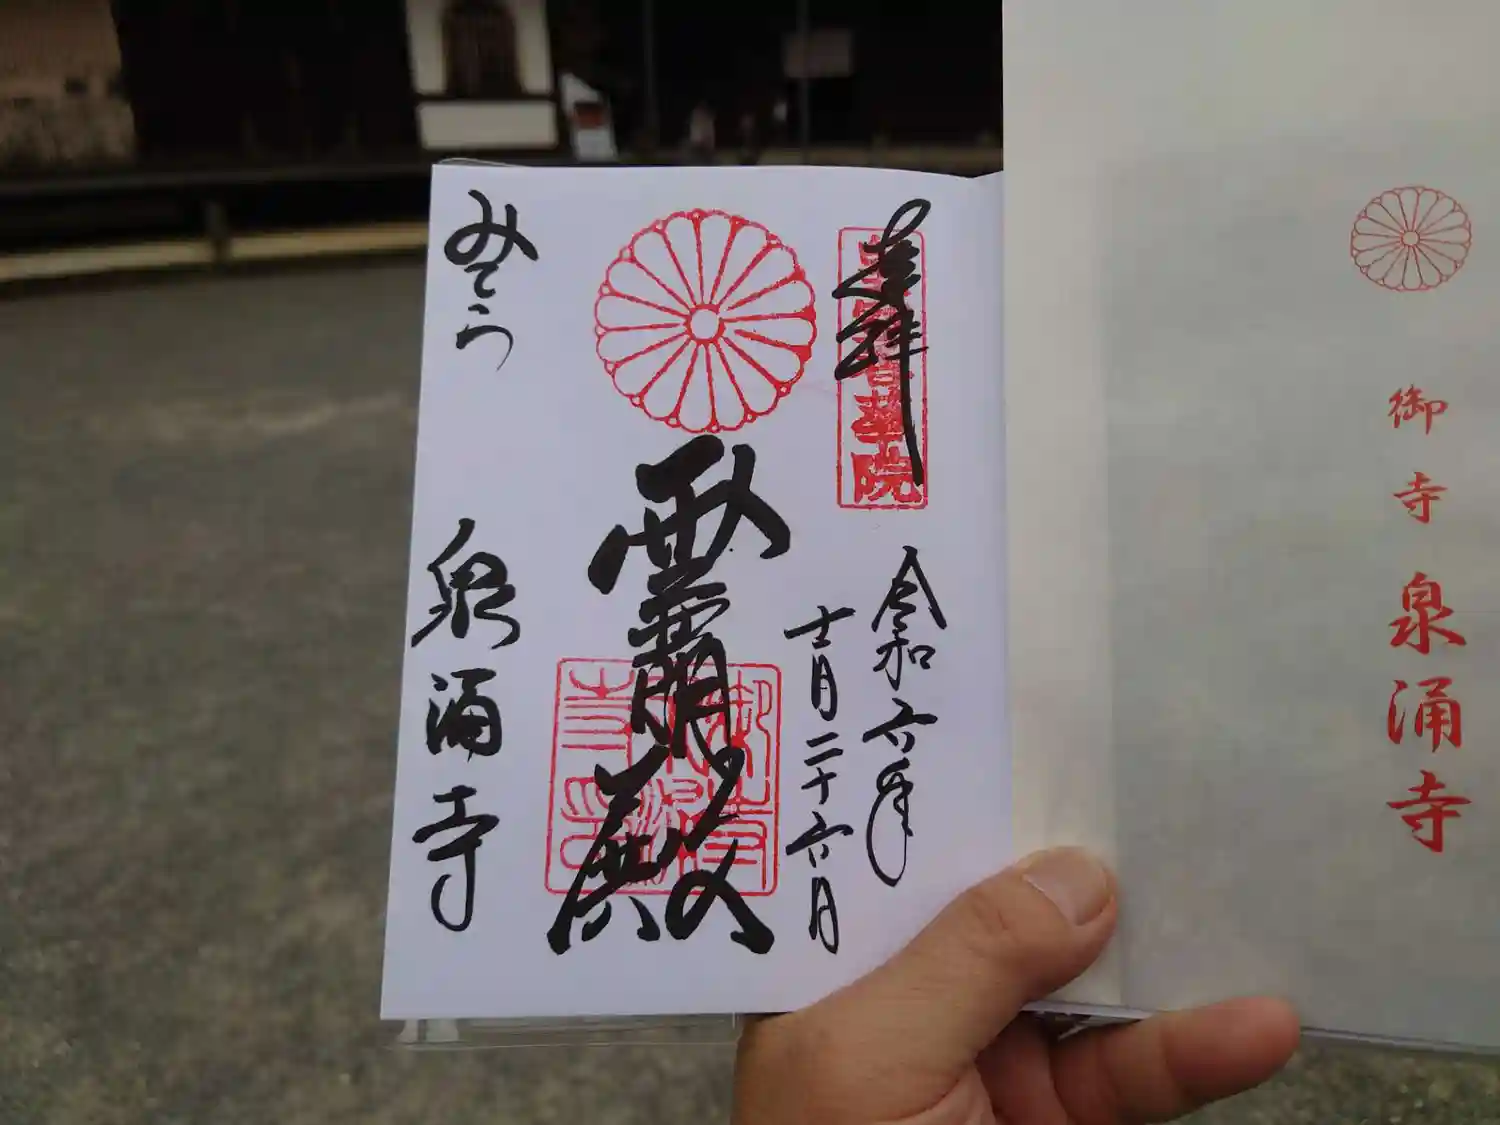 御寺泉涌寺
奉拝
皇室香華院
令和六年
十一月二十六日
霊明殿
御寺泉涌寺印
みてら
泉涌寺